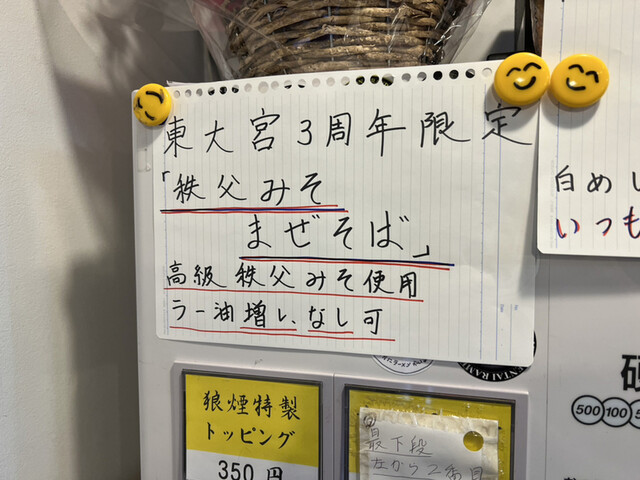 東大宮3周年限定
「秩父みそ
まぜそば」
高級秩父みそ使用
ラー油増し、なし可
白めし
いつも
狼煙特製
トッピング
350円
最下段
左から2番目
500 100